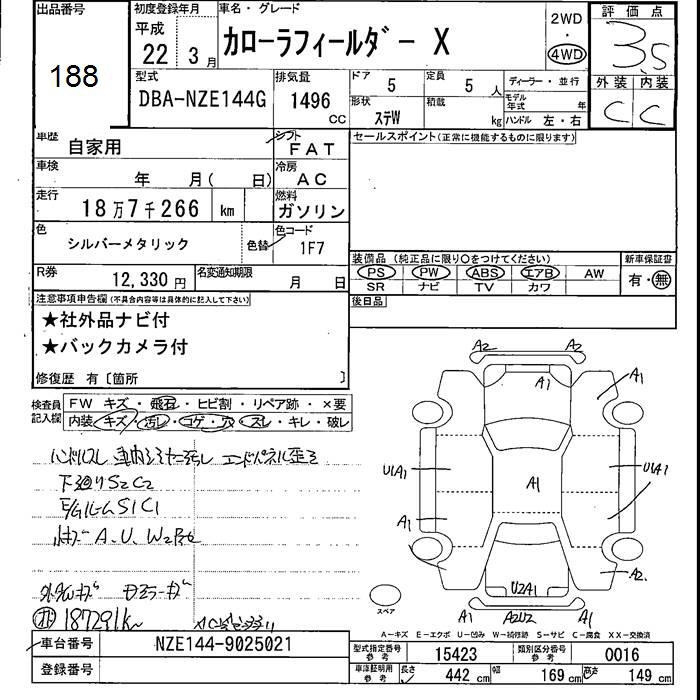 出品番号
188
初度登録年月
平成
22 3月
車名・グレード
カローラフィールダー X
2WD
・
4WD
評価点
3.5
型式
DBA-NZE144G
排気量
1496
CC
ドア
5
定員
5 人
形状
ステW
積載
kg
ディーラー・並行
モデル年式 年
ハンドル 左・右
外装 内装
C C
車歴
自家用
シフト
FAT
セールスポイント(正常に機能するものに限ります)
車検
年 月( 日)
冷房
AC
走行
18万7千266 km
燃料
ガソリン
色
シルバーメタリック
色替
色コード
1F7
装備品 (純正品に限り○をつけてください)
PS PW ABS エアB AW
SR ナビ TV カワ
新車保証書
有・無
R券
12,330 円
名変通知期限
月 日
後日品
注意事項申告欄(不具合内容等は具体的に記入して下さい)
★社外品ナビ付
★バックカメラ付
修復歴 有〔箇所 〕
検査員記入欄
FW キズ・飛石・ヒビ割・リペア跡・×要
内装 キズ・汚レ・コゲ・穴・スレ・キレ・破レ
ハンドルスレ
下廻りS2C2
E/GルームS1C1
A、U、W2
187291km
A2 A2
A1 A1
U1A1 U1A1
A1
A1
A2
U2A1
A1 A2U2 A1
スペア
A-キズ E-エクボ U-凹み W-補修跡 S-サビ C-腐食 XX-交換済
車台番号
NZE144-9025021
登録番号
型式指定番号
参考
15423
類別区分番号
参考
0016
車庫証明用
参考
長さ 442 cm 幅 169 cm 高さ 149 cm